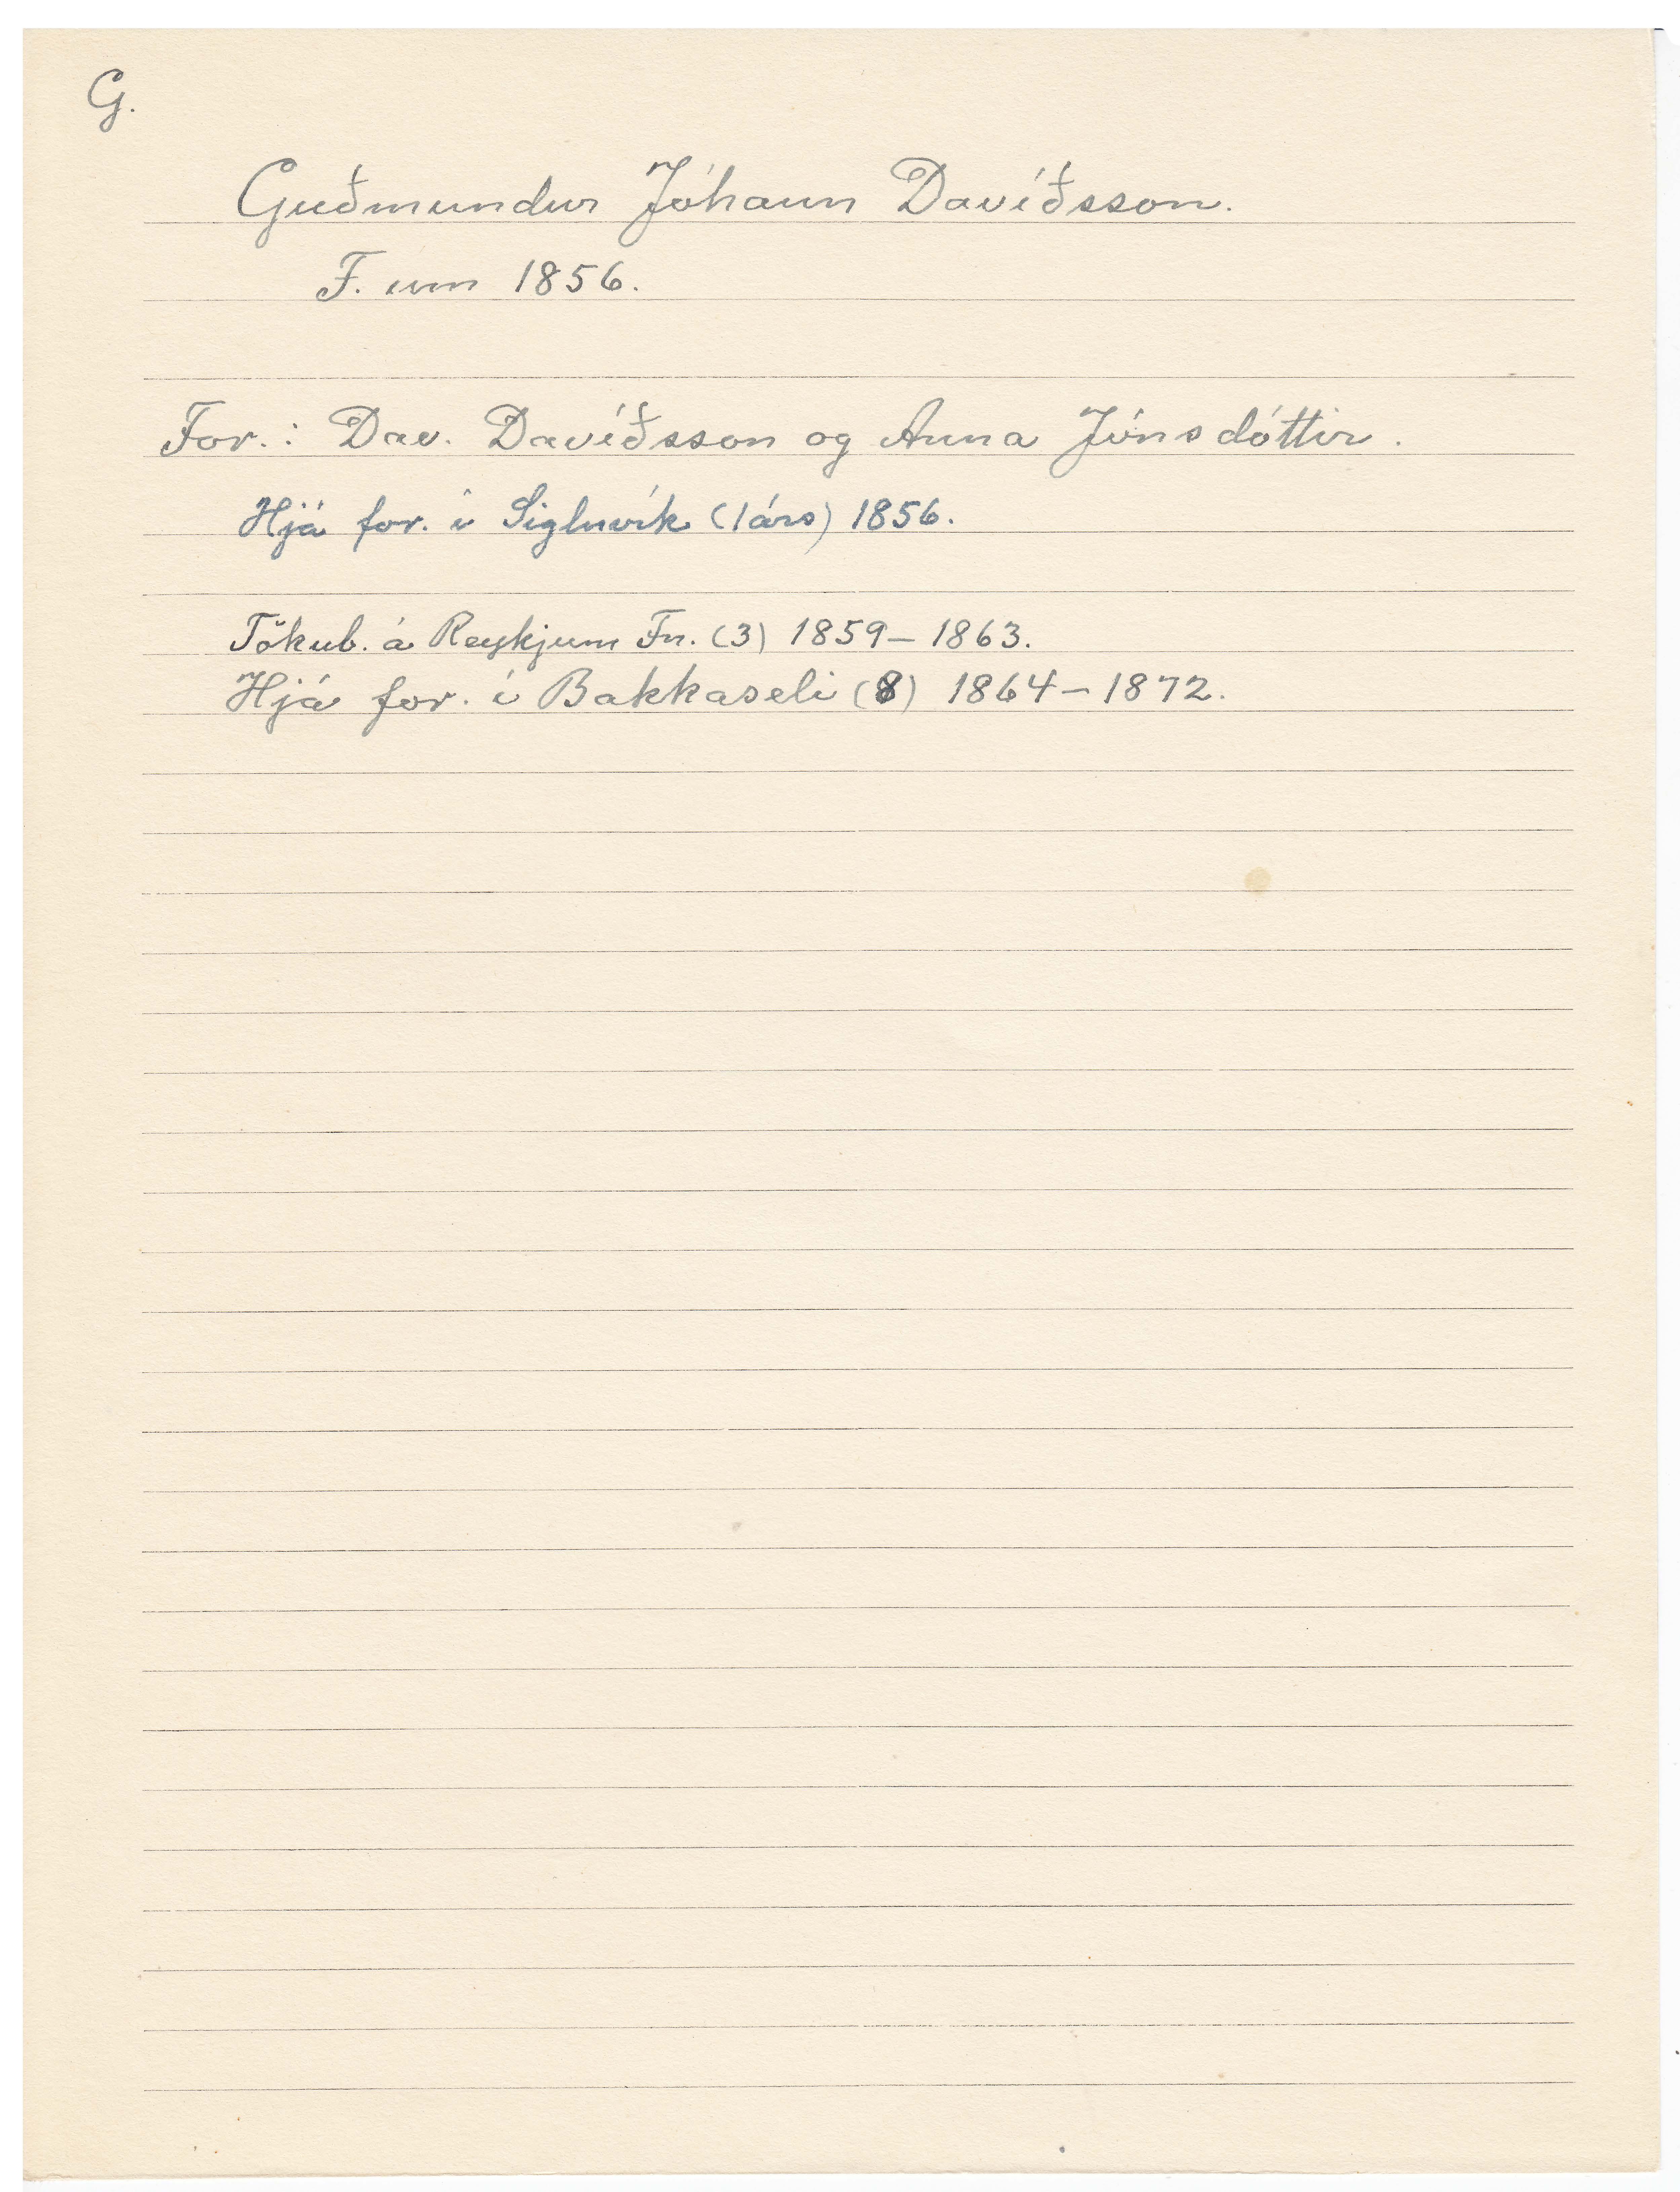 G.
Guðmundur Jóhann Davíðsson.
F. um 1856.
For.: Dav. Davíðsson og Anna Jónsdóttir.
Hjá for. í Sigluvík (1árs) 1856.
Tökub. á Reykjum Fn. (3) 1859– 1863.
Hjá for. í Bakkaseli (8) 1864–1872.